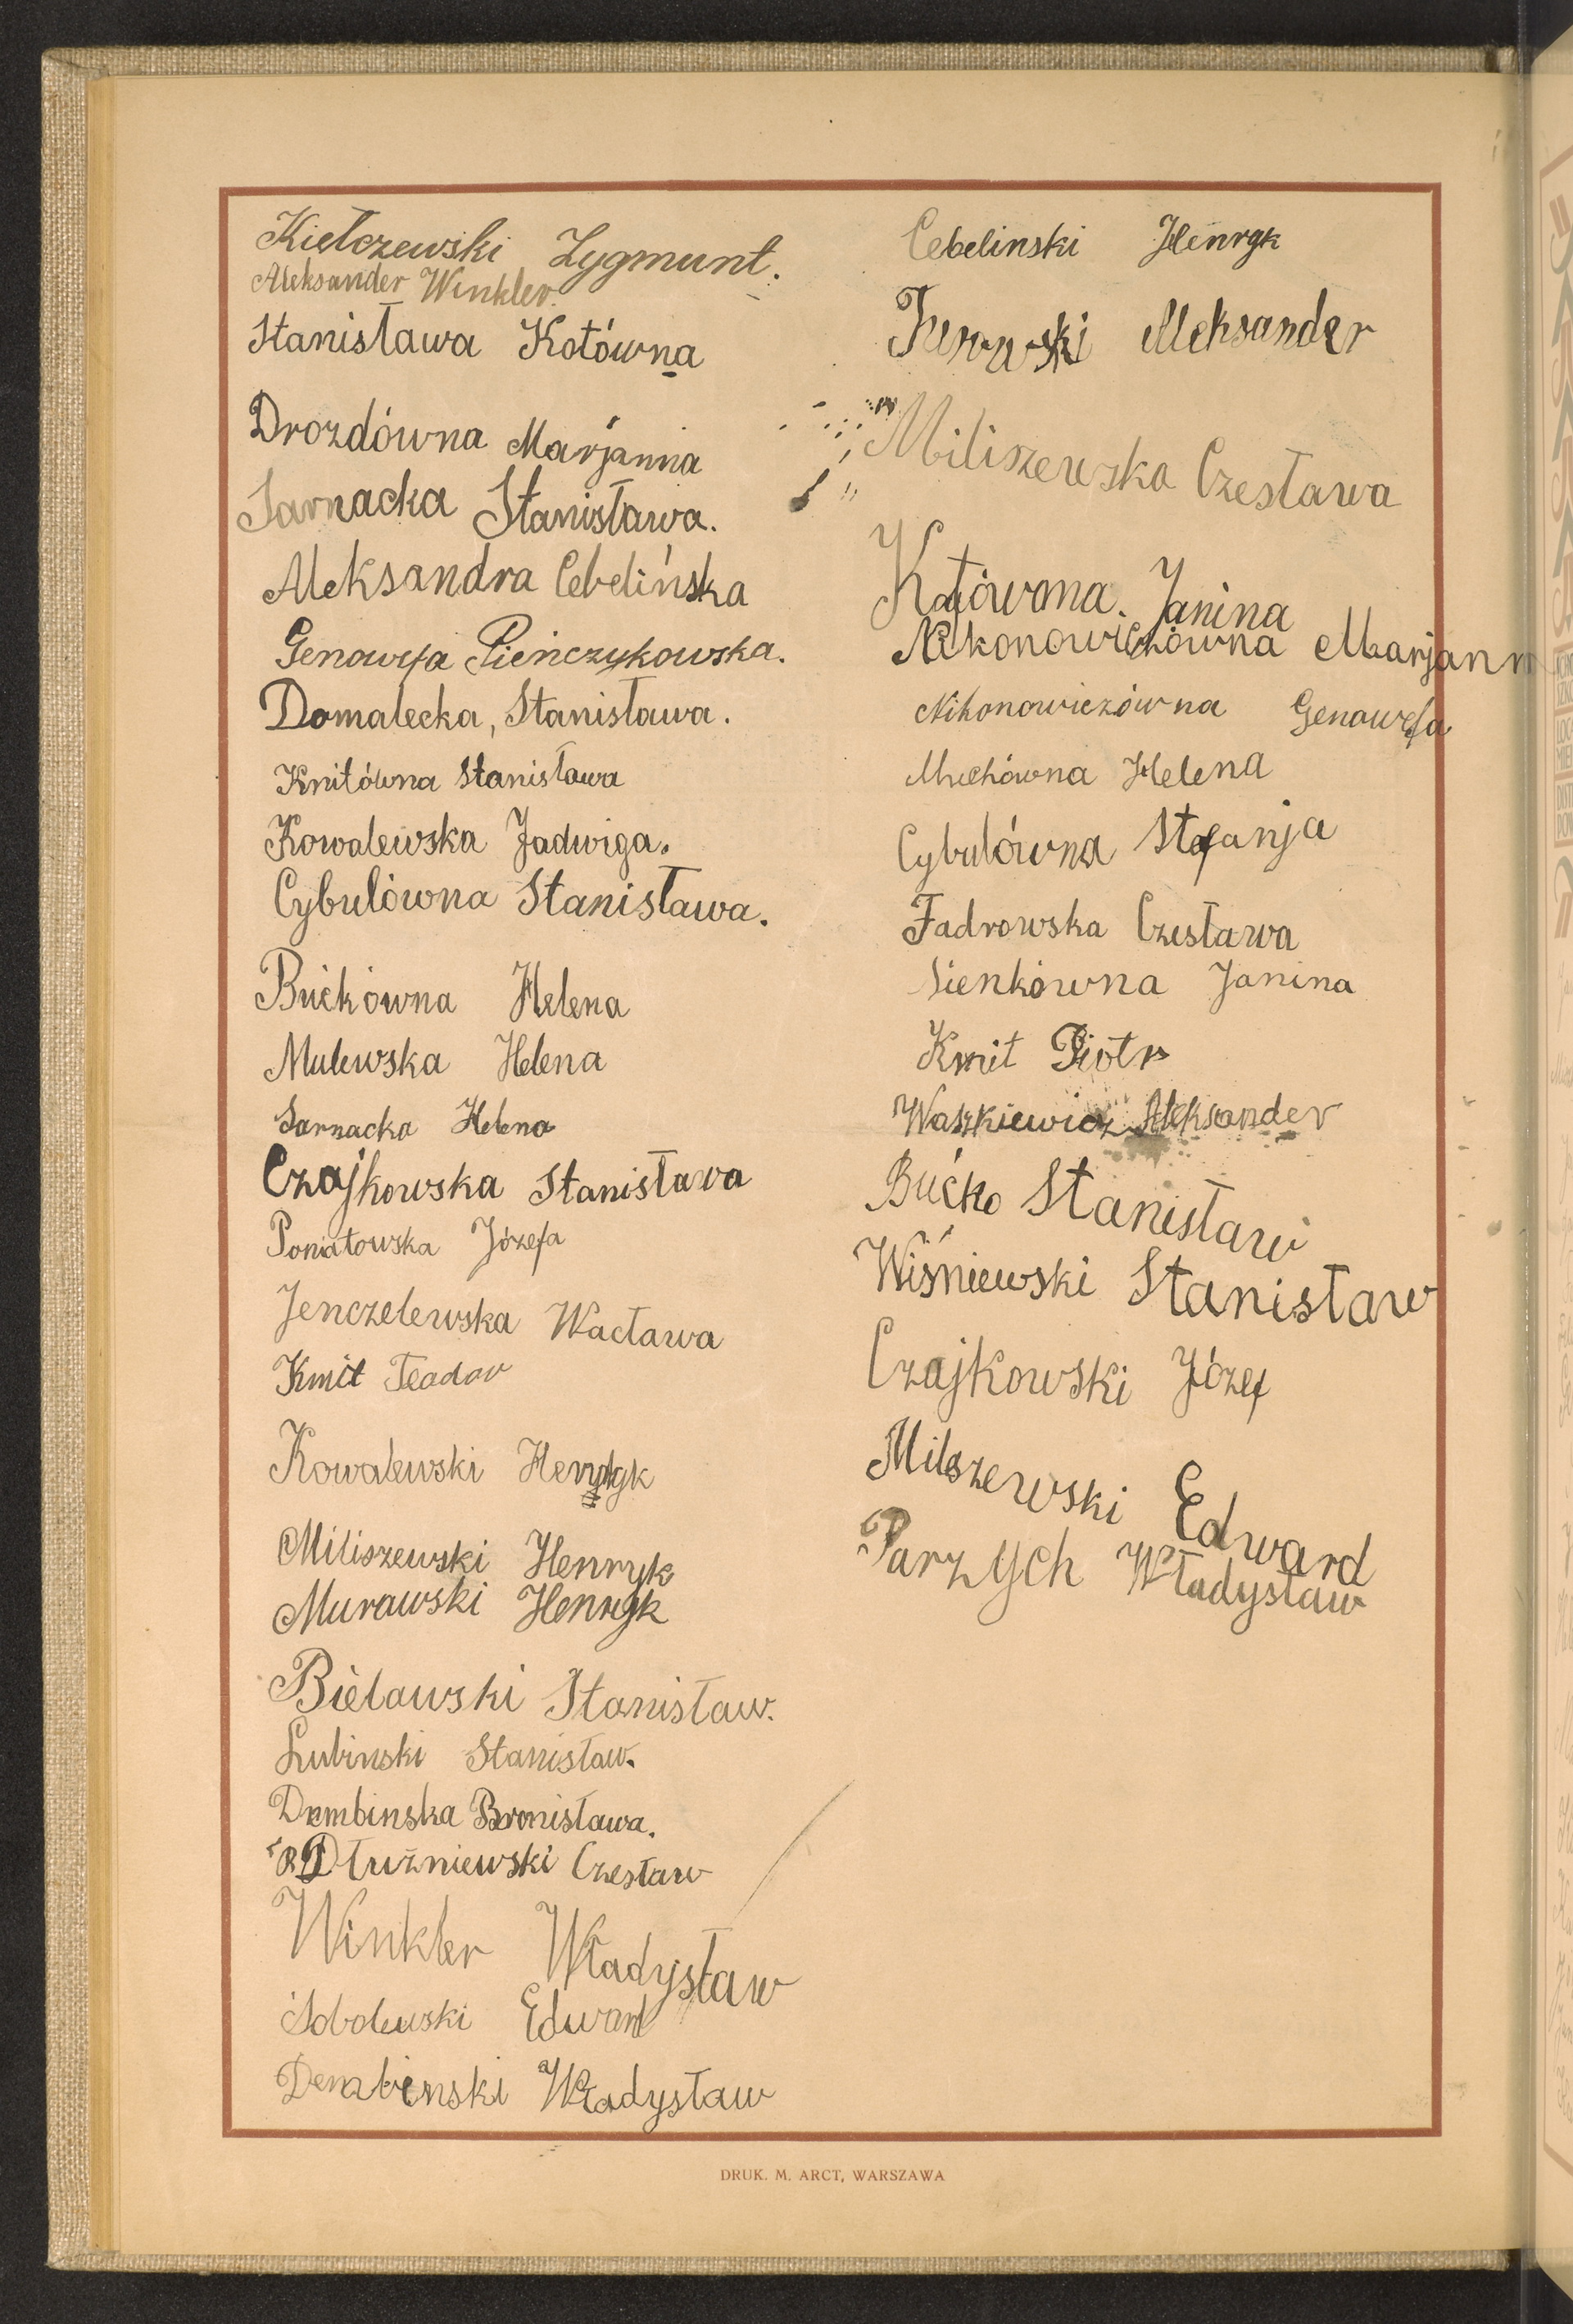 Kiełczewski Zygmunt.
Aleksander Winkler.
Stanisława Kotówna
Drozdówna Marjanna
Sarnacka Stanisława.
Aleksandra Cebelińska
Genowefa Pieńczykowska.
Domalecka, Stanisława.
Knitówna Stanisława
Kowalewska Jadwiga.
Cybulówna Stanisława.
Bućkówna Helena
Mulewska Helena
Sarnacka Helena
Czajkowska Stanisława
Poniatowska Józefa
Jenczelewska Wacława
Kmit Teador
Kowalewski Henryk
Miliszewski Henryk
Murawski Henryk
Bielawski Stanisław.
Lubinski Stanisław.
Dembinska Bronisława.
Dłużniewski Czesław
Winkler Władysław
Sobolewski Edward
Dembinski Władysław
Cebelinski Henryk
Aleksander
Miliszewska Czesława
Kotówna. Janina
Nikonowiczówna Marjann
Nikonowiczówna Genowefa
Helena
Cybulówna Stefanja
Fadrowska Czesława
Sienkówna Janina
Kmit Piotr
Waszkiewicz Aleksander
Bućko Stanisław
Wiśniewski Stanisław
Czajkowski Józef
Milszewski Edward
Parzych Władysław
DRUK. M. ARCT, WARSZAWA